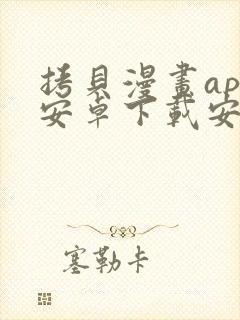 拷貝漫畫ap
安卓下載安
塞勒卡